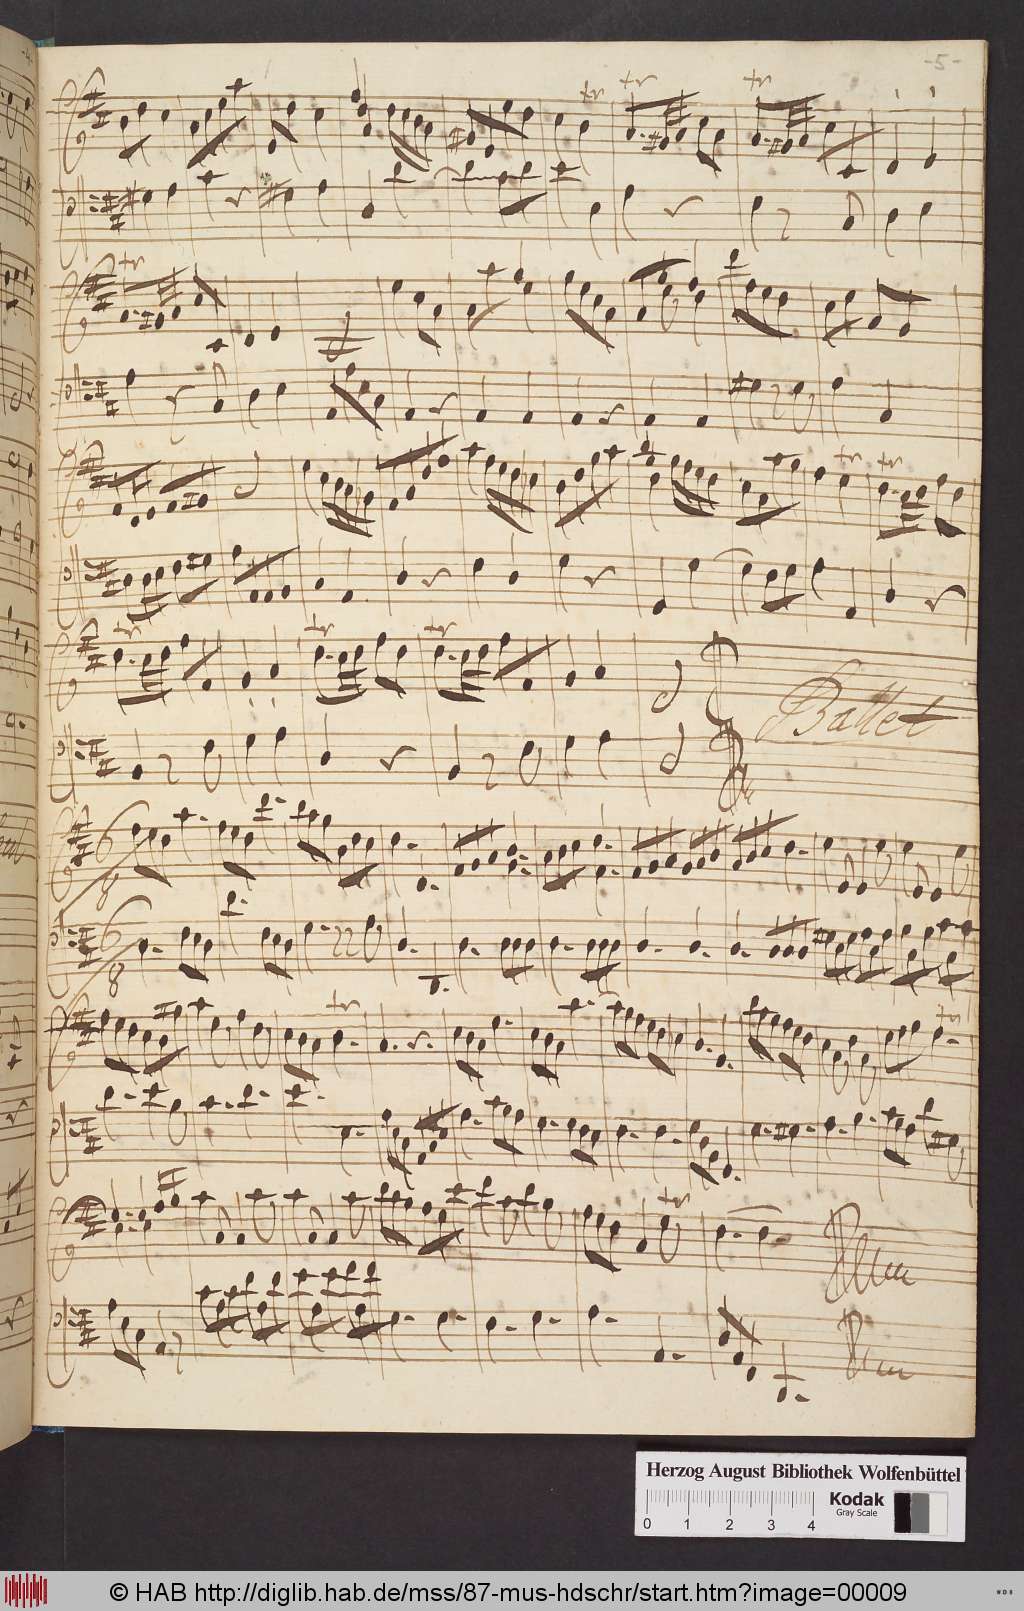 -5-
tr tr tr
tr
tr tr
tr tr tr
Ballet
6
8
6
8
tr tr
tr
Herzog August Bibliothek Wolfenbüttel
Kodak
Gray Scale
0 1 2 3 4
© HAB http://diglib.hab.de/mss/87-mus-hdschr/start.htm?image=00009